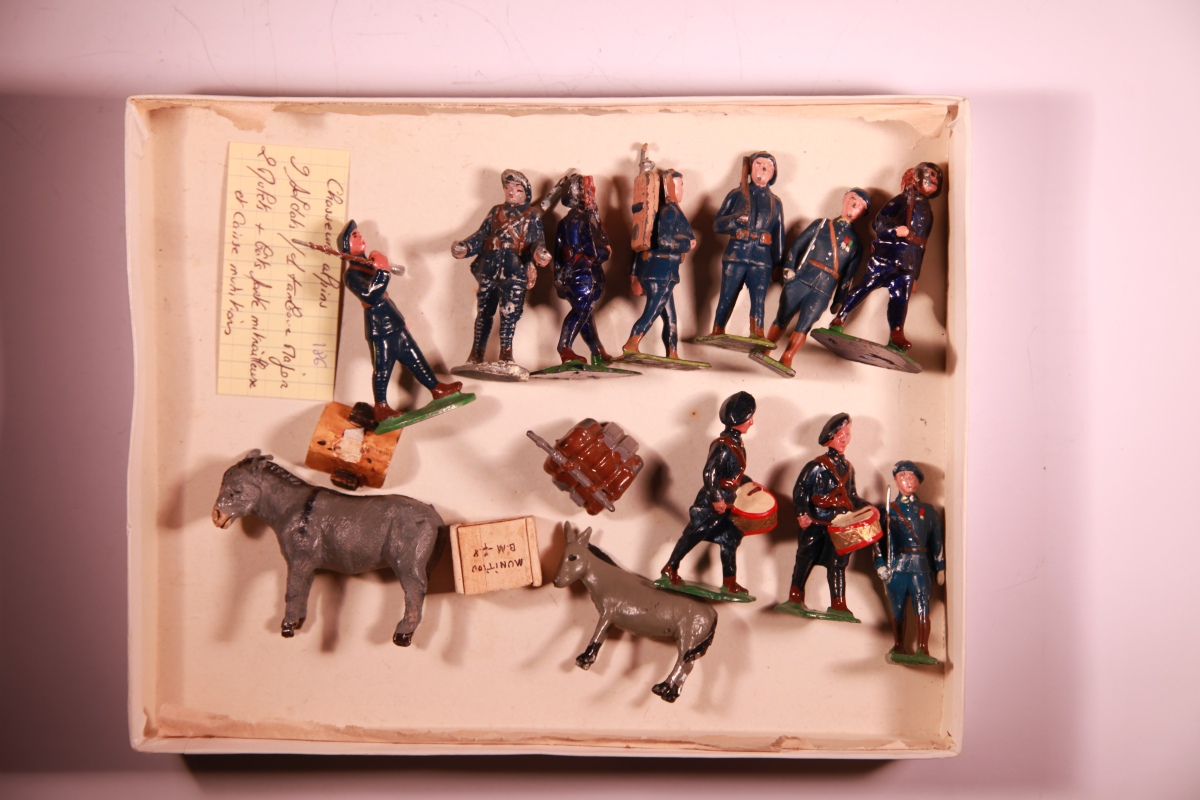 Chasseurs alpins
186
9 soldats / et tambour Major
2 Mulets + bât porte mitrailleuse
et caisse munitions
MUNITION
B.M